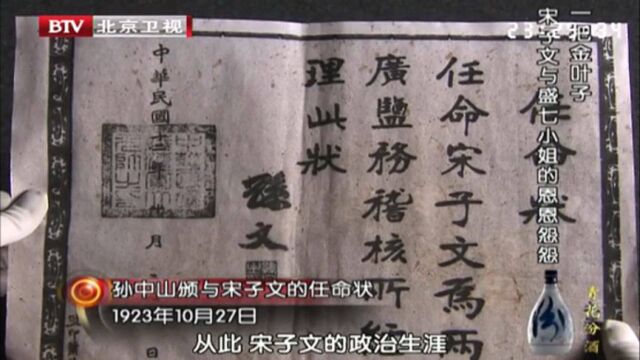 BTV 北京卫视
一把金叶子
宋子文与盛七小姐的恩恩怨怨
任命状
任命宋子文為兩
廣鹽務稽核所經
理此狀
孫文
中華民國十二年十月
孙中山颁与宋子文的任命状
1923年10月27日
从此 宋子文的政治生涯
青花汾酒